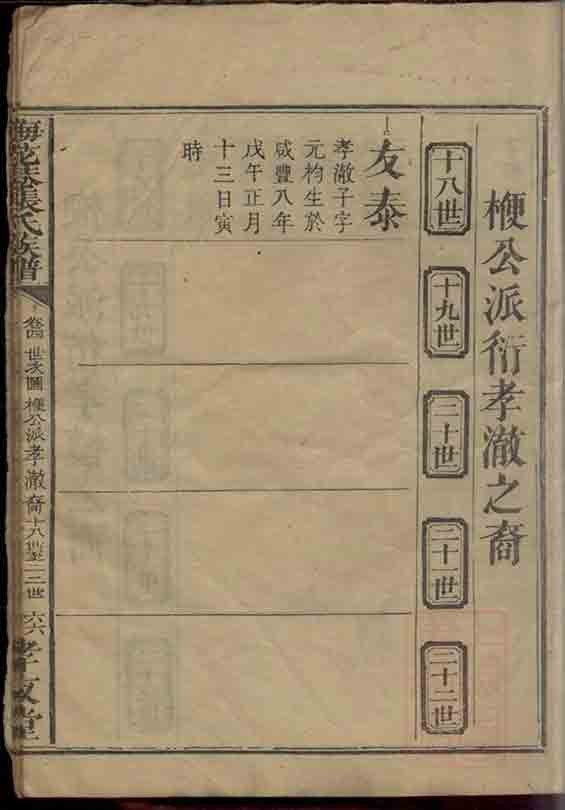 楩公派衍孝澈之裔
十八世
十九世
二十世
二十一世
二十二世
友泰
孝澈子字
元枃生於
咸豐八年
戊午正月
十三日寅
時
張氏族譜
世次圖 楩公派孝澈裔十八世至二二世
六六
孝友堂